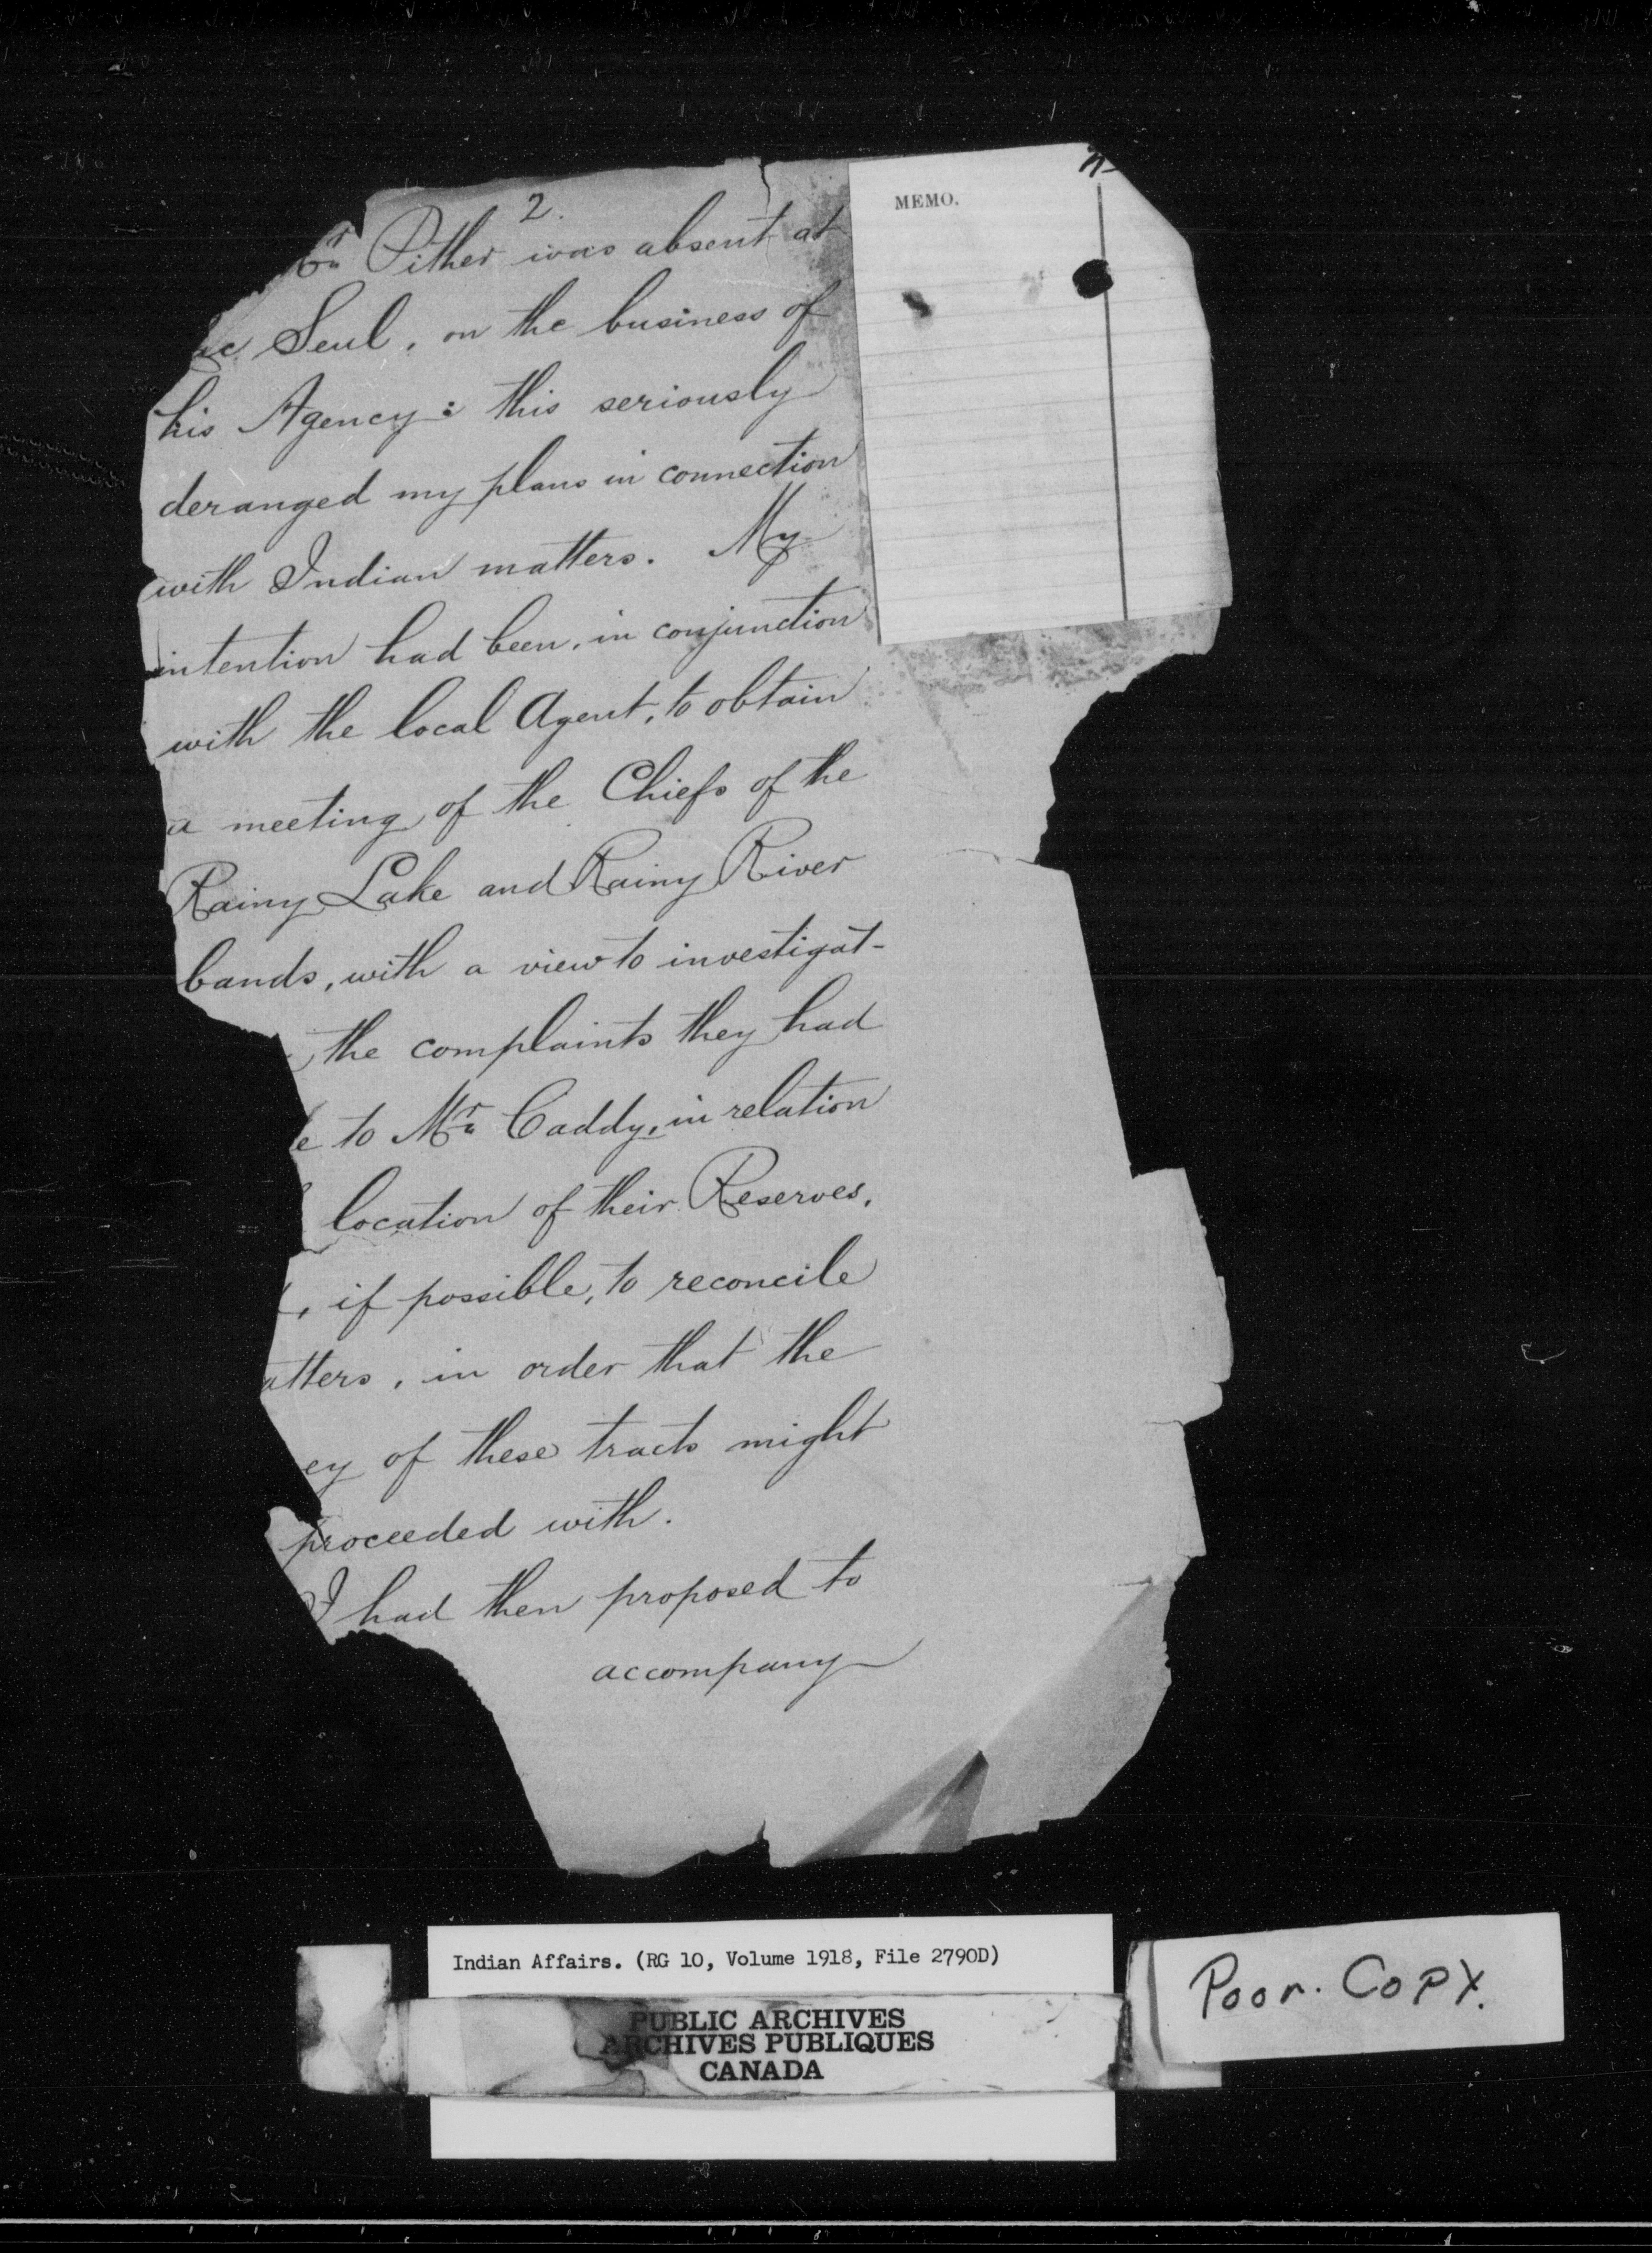 2.
Mr Pither was absent at
ac Seul, on the business of
his Agency: this seriously
deranged my plans in connection
with Indian matters. My
intention had been, in conjunction
with the local Agent, to obtain
a meeting of the Chiefs of the
Rainy Lake and Rainy River
bands, with a view to investigat-
the complaints they had
e to Mr Caddy, in relation
location of their Reserves,
, if possible, to reconcile
atters, in order that the
ey of these tracts might
proceeded with.
I had then proposed to
accompany
MEMO.
Indian Affairs. (RG 10, Volume 1918, File 2790D)
PUBLIC ARCHIVES
ARCHIVES PUBLIQUES
CANADA
Poor. Copy.